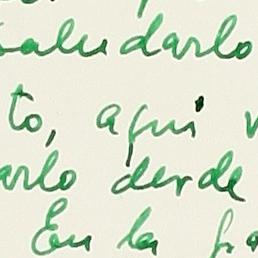 saludarlo
to, aqui v
arlo desde
En la fra